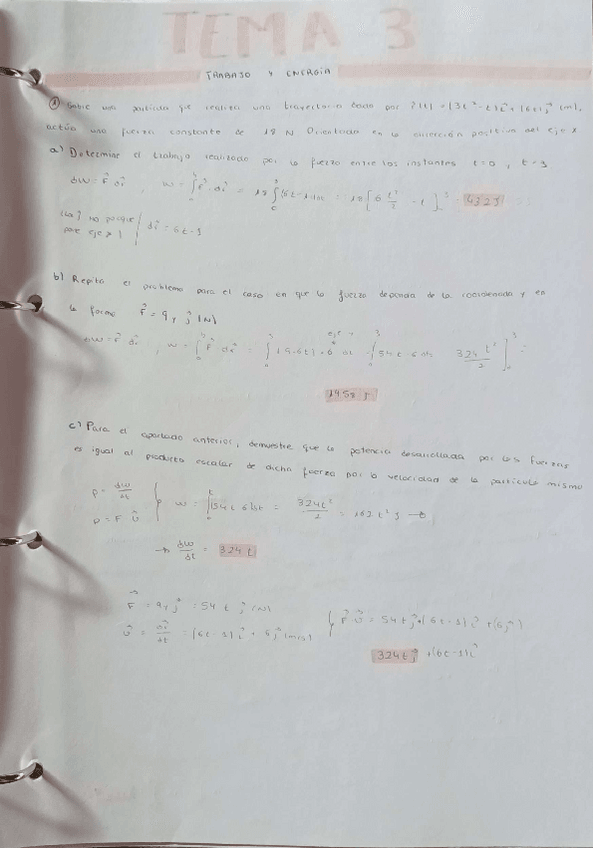 TEMA 3
TRABAJO Y ENERGÍA
① Sobre una partícula que realiza una trayectoria dada por r(t) = (3t² - t)i + (6t)j (m),
actúa una fuerza constante de 18 N Orientada en la dirección positiva del eje x
a) Determine el trabajo realizado por la fuerza entre los instantes t=0, t=3
dw = F dr , w = ∫ F · dr = 18 ∫(6t-1)dt = 18[6 t²/2 - t] = 432J
no porque
para eje x | dr = 6t-1
b) Repita el problema para el caso en que la fuerza dependa de la coordenada y en
la forma F = 9y j (N)
dw = F dr , w = ∫ F · dr = ∫ (9·6t) · 6 dt = ∫ 54t 6 dt 324 t²/2 ] =
1458 J
c) Para el apartado anterior, demuestre que la potencia desarrollada por las fuerzas
es igual al producto escalar de dicha fuerza por la velocidad de la partícula mismo
P = dw/dt
P = F · v } w = ∫ 54t 6 dt = 324t²/2 = 162t² J →
→ dw/dt = 324 t
F = 9y j = 54 t j (N)
v = dr/dt = (6t-1)i + 6j (m/s) { F · v = 54t j · (6t-1)i + (6j)
324t j + (6t-1)i